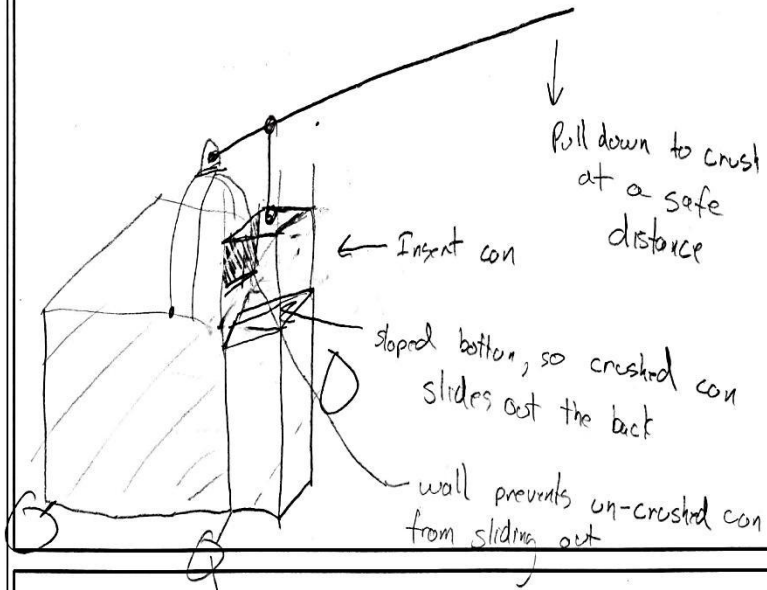 Pull down to crush
at a safe
distance
← Insert can
sloped bottom, so crushed can
slides out the back
wall prevents un-crushed can
from sliding out